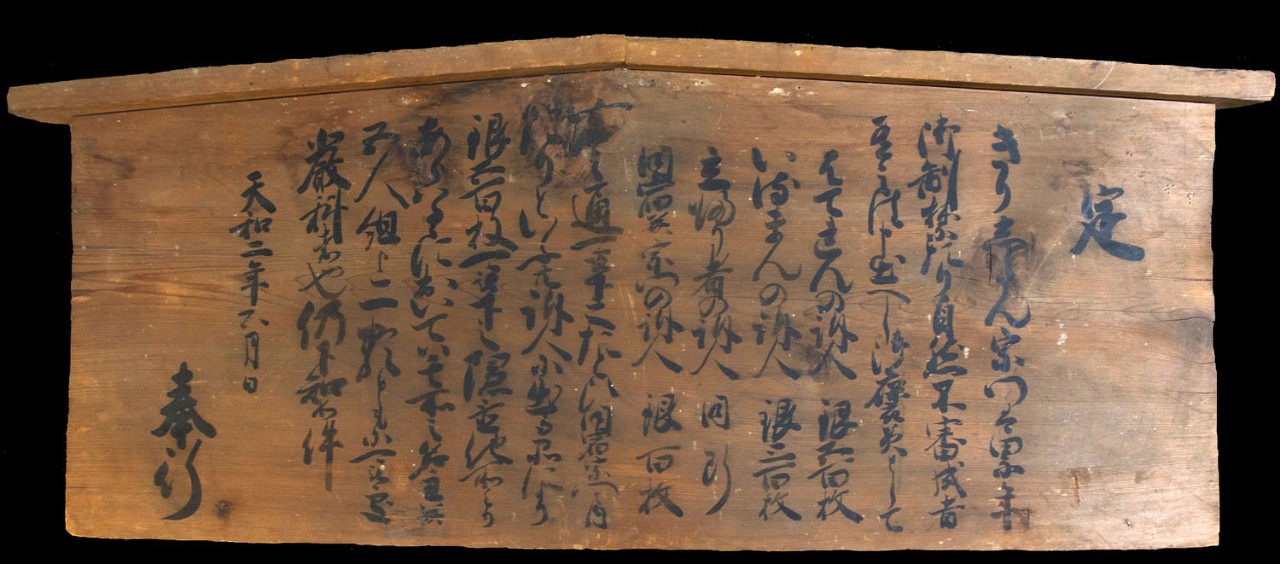 定
きりしたん宗門は累年
御制禁たり自然不審成者
有之は申出へし御褒美として
はてれんの訴人 銀五百枚
いるまんの訴人 銀三百枚
立帰り者の訴人 同断
同宿并宗門の訴人 銀百枚
右之通可被下之たとひ同宿宗門之内
たりといふとも訴人に出る品により
銀五百枚可被下之隠置他所より
あらはるゝにおいては其所之名主并
五人組迄一類ともに可被処
厳科者也仍下知如件
天和二年六月日
奉行